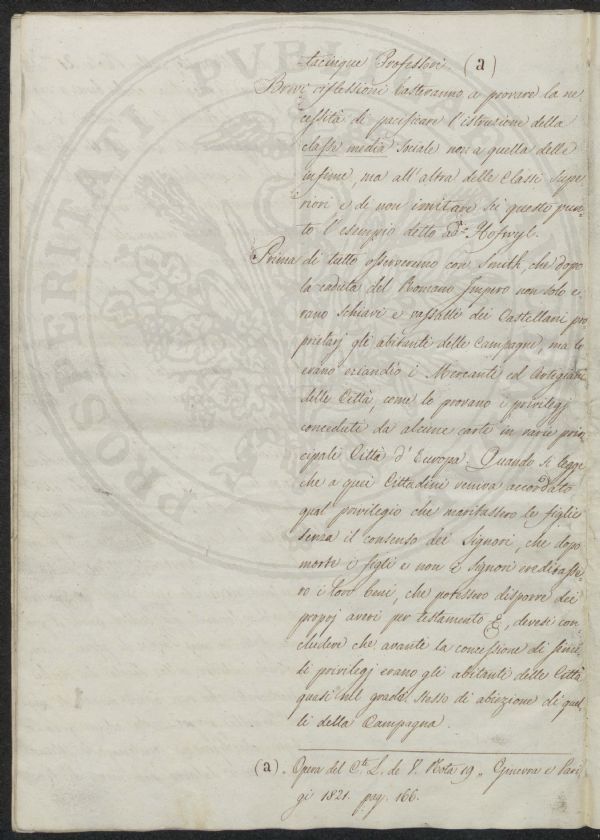 tacinque Professori. (a)
Brevi riflessioni basteranno a provare la ne
cessità di pacificare l'istruzione della
classe media sociale non a quella delle
infime, ma all'altra delle Classi supe
riori e di non imitare su questo pun
to l'esempio detto di Hofwyl.
Prima di tutto osserveremo con Smith, che dopo
la caduta del Romano Impero non solo e
rano schiavi e vassalli dei Castellani pro
prietarj gli abitanti delle Campagne, ma lo
erano eziandio i Mercanti ed Artigiani
delle Città, come lo provano i privilegj
conceduti da alcune carte in varie prin
cipali Città d'Europa. Quando si legge
che a quei Cittadini veniva accordato
qual privilegio che maritassero le figlie
senza il consenso dei Signori, che dopo
morte i figli e non i Signori ereditasse
ro i loro beni, che potessero disporre dei
proprj averi per testamento &, devesi con
cludere che avanti la concessione di simi
li privilegj erano gli abitanti delle Città
quasi nel grado stesso di abiezione di quel
li della Campagna.
(a). Opera del C.te L. de V. Nota 19 „ Ginevra e Pari
gi 1821. pag. 166.
PROSPERITATI PVBLICAE